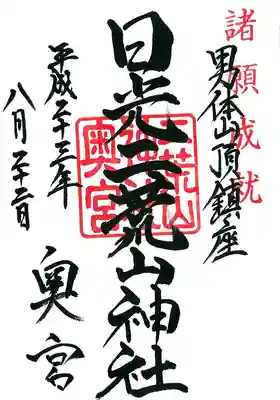 諸願成就
男体山頂鎮座
日光二荒山神社
奥宮
平成二十三年
八月二十二日
二荒山
奥宮